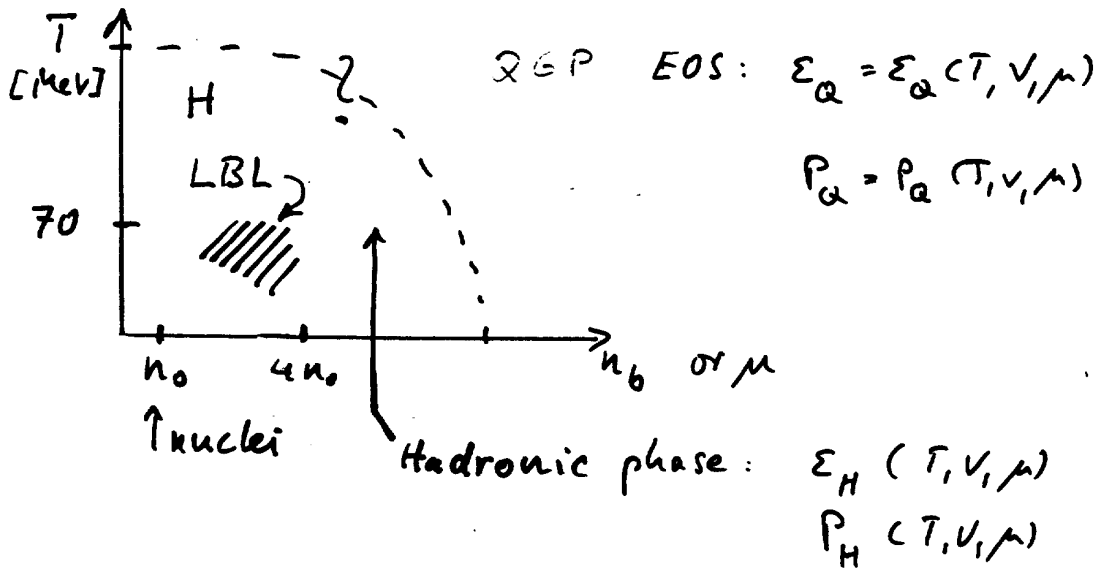 T
[MeV]
H
?
QGP EOS: ε_Q = ε_Q (T, V, μ)
P_Q = P_Q (T, V, μ)
LBL
70
n₀
4n₀
n_b or μ
↑nuclei
Hadronic phase: ε_H (T, V, μ)
P_H (T, V, μ)